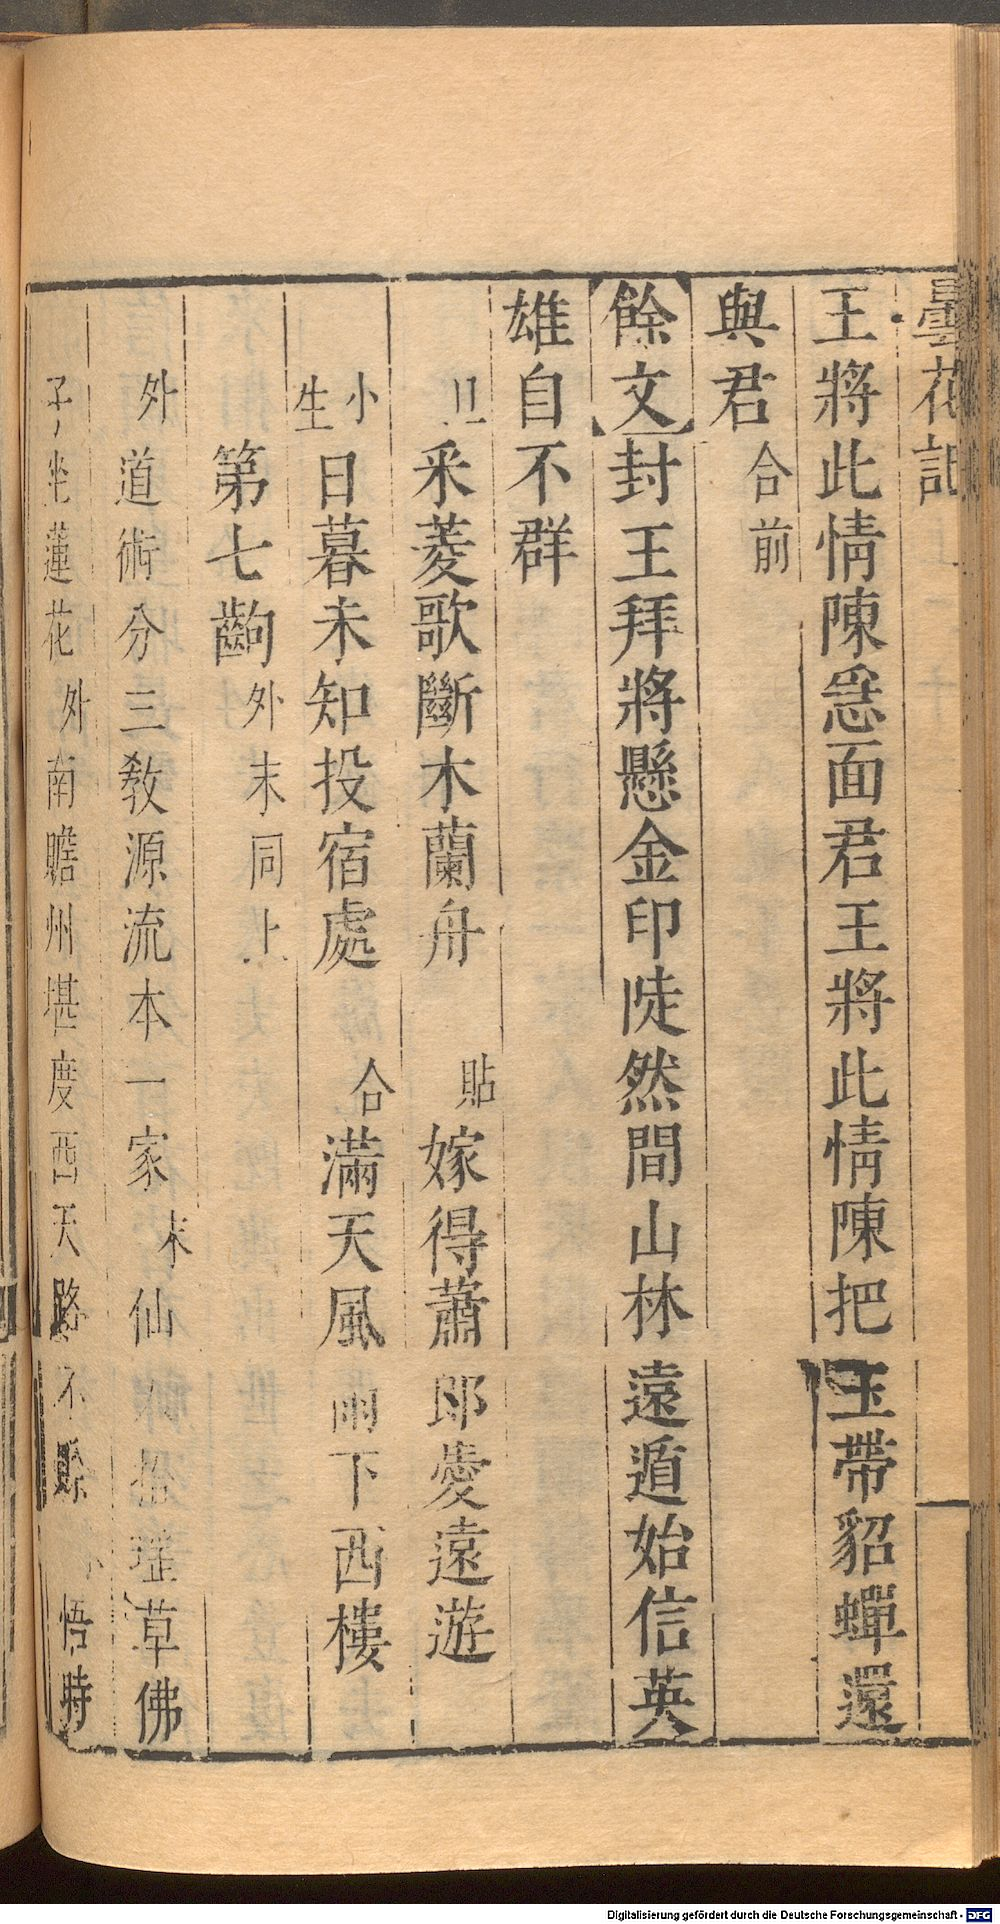 曇花記
王將此情陳㤅面君王將此情陳把玉帶貂蟬還
與君合前
【餘文】封王拜將懸金印陡然間山林遠遁始信英
雄自不群
旦采菱歌斷木蘭舟 貼嫁得蕭郎愛遠遊
小生日暮未知投宿處 合滿天風雨下西樓
第七齣外末同上
外道術分三教源流本一家末仙人拾瑤草佛
子坐蓮花外南贍州堪度西天路不賒 悟時
Digitalisierung gefördert durch die Deutsche Forschungsgemeinschaft - DFG